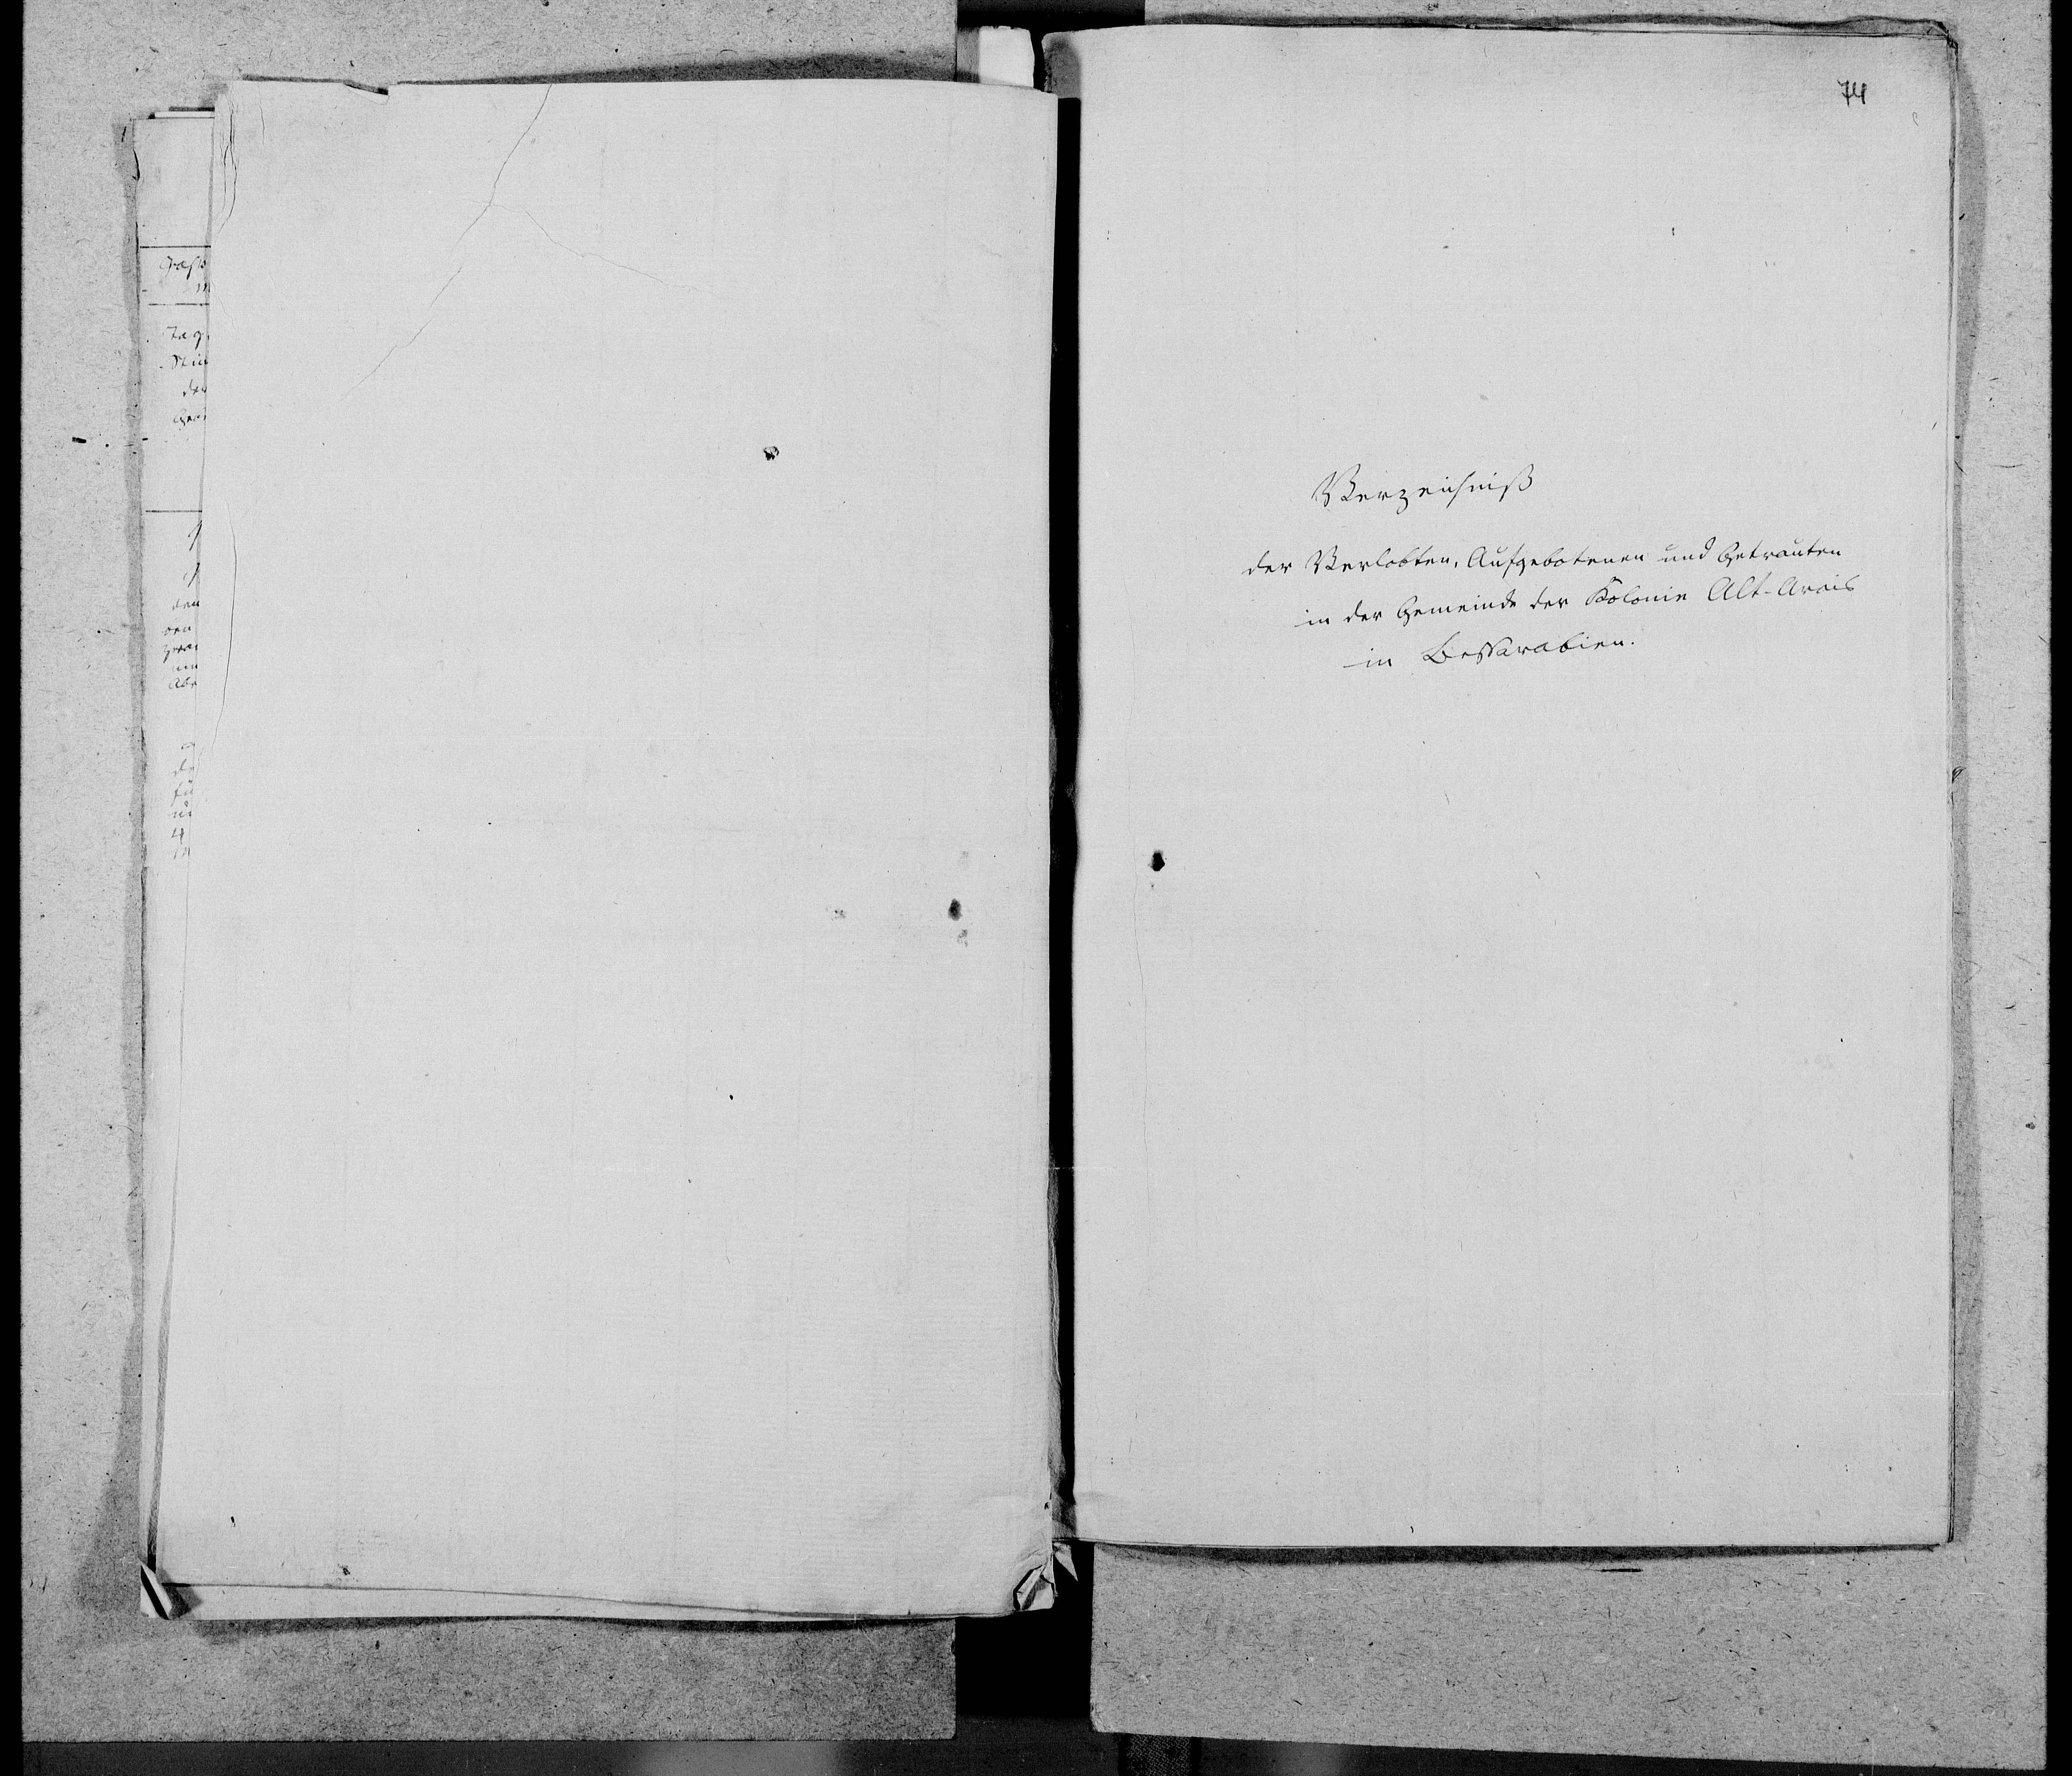 74
Verzeichniß
der Verlobten, Aufgebotenen und Getrauten
in der Gemeinde der Kolonie Alt-Arcis
in Bessarabien.